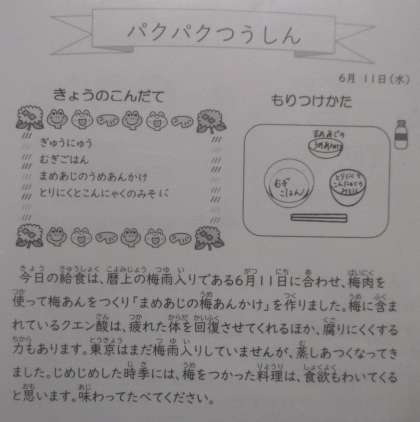 パクパクつうしん
6月 11日(水)
きょうのこんだて
もりつけかた
ぎゅうにゅう
むぎごはん
まめあじのうめあんかけ
とりにくとこんにゃくのみそに
まめあじの
うめあんかけ
むぎ
ごはん
とりにくと
こんにゃくの
みそに
今日の給食は、暦上の梅雨入りである6月11日に合わせ、梅肉を
使って梅あんをつくり「まめあじの梅あんかけ」を作りました。梅に含ま
れているクエン酸は、疲れた体を回復させてくれるほか、腐りにくくする
力もあります。東京はまだ梅雨入りしていませんが、蒸しあつくなってき
ました。じめじめした時季には、梅をつかった料理は、食欲もわいてくる
と思います。味わってたべてください。